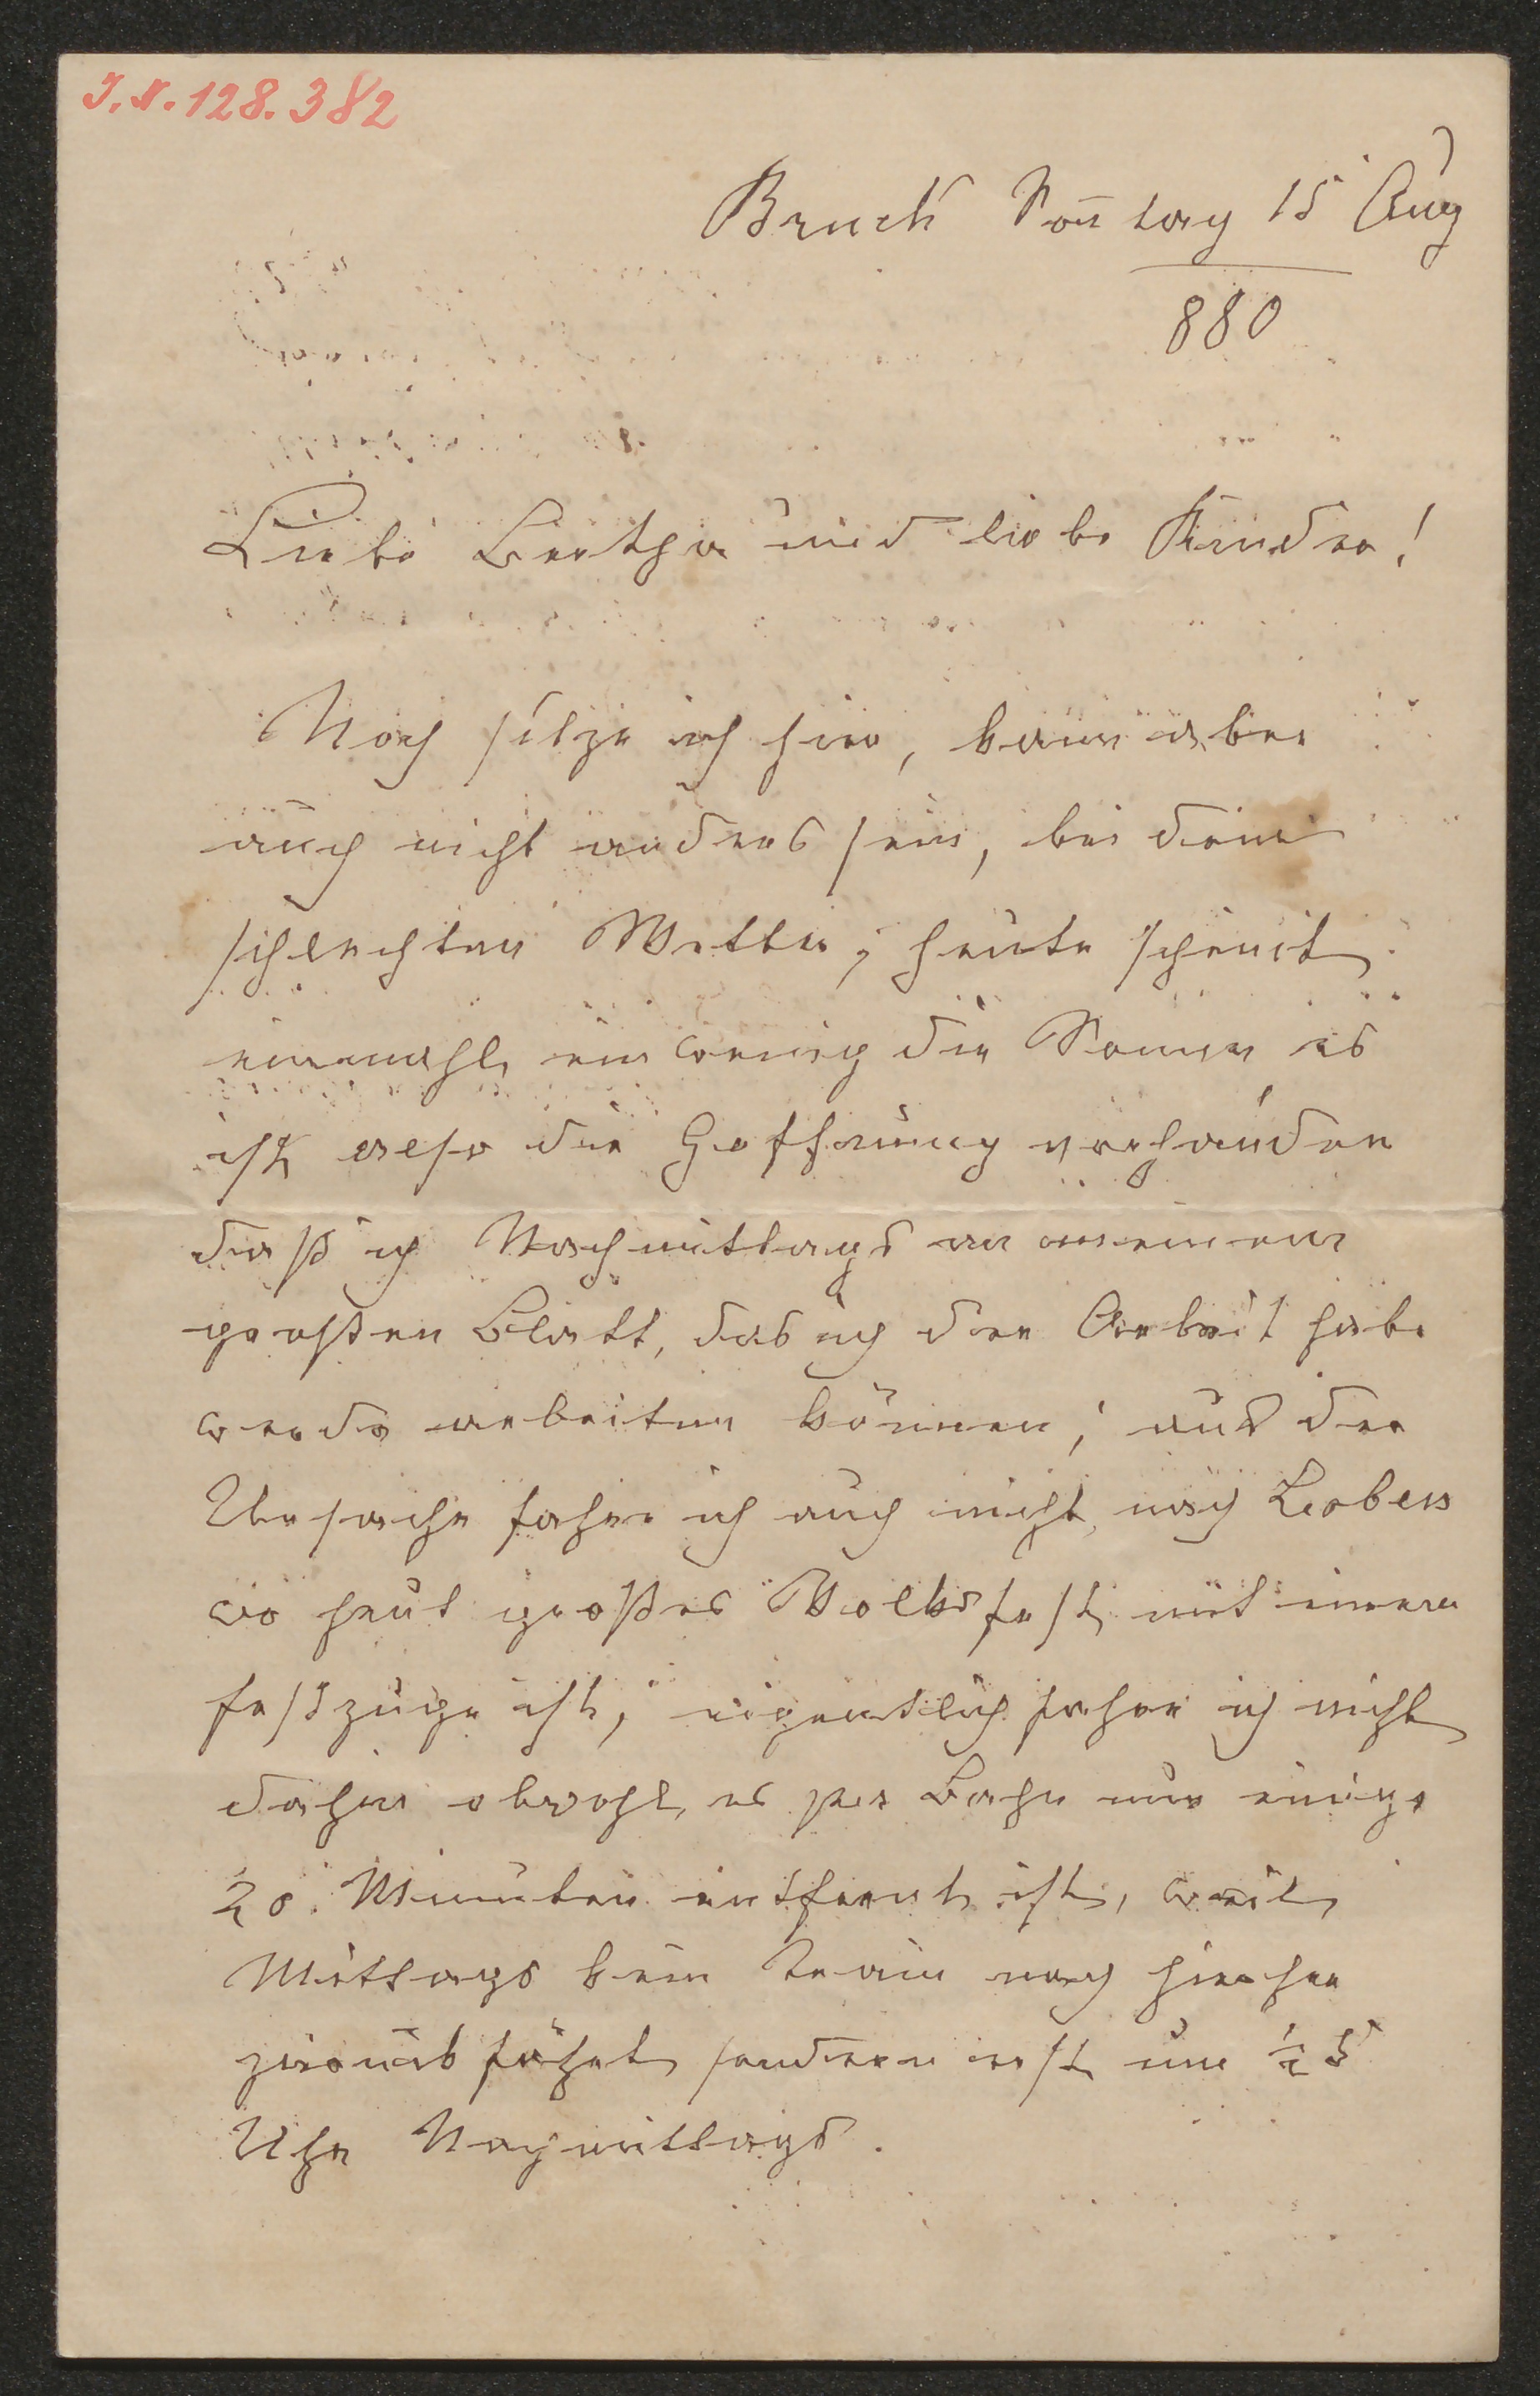 J.N. 128.382
Bruck Sonntag 15 Aug
880
Liebe Bertha und liebe Kinder!
Noch sitze ich hier, kann aber
auch nicht anders sein, bei dem
schlechten Wetter; heute scheint
einmahl ein wenig die Sonne es
ist also die Hoffnung vorhanden
daß ich Nachmittags an meinem
großen Blatt, das ich der Arbeit habe
werde arbeiten können; aus der
Ursache fahre ich auch nicht nach Leoben
wo heut großes Volksfest mit einem
Festzuge ist; eigentlich fahre ich nicht
dahin obwohl es per Bahn nur einige
20 Minuten entfernt ist, weil
Mittags kein Train nach hierher
zurück fährt sondern erst um ½ 5
Uhr Nachmittags.